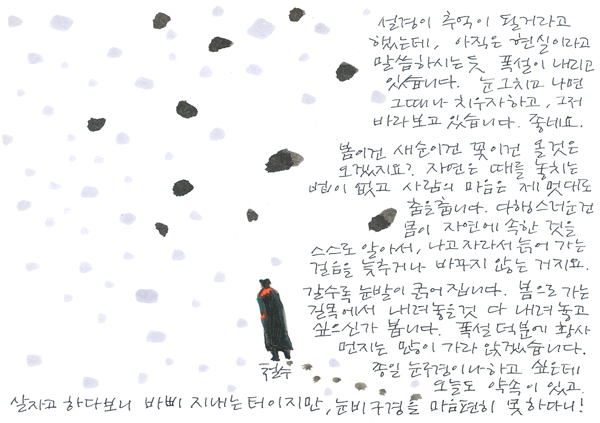 설경이 추억이 될거라고
했는데, 아직은 현실이라고
말씀하시는듯 폭설이 내리고
있습니다. 눈 그치고 나면
그때나 치우자하고, 그저
바라보고 있습니다. 좋네요.
봄이건 새순이건 꽃이건 올것은
오겠지요? 자연은 때를 놓치는
법이 없고 사람의 마음은 제멋대로
춤을춥니다. 다행스러운건
몸이 자연에 속한 것을
스스로 알아서, 나고 자라서 늙어 가는
걸음을 늦추거나 바꾸지 않는 거지요.
갈수록 눈발이 굵어집니다. 봄으로 가는
길목에서 내려놓을것 다 내려놓고
싶으신가 봅니다. 폭설 덕분에 황사
먼지는 많이 가라앉겠습니다.
종일 눈구경이나하고 싶은데
오늘도 약속이 있고.
철수
살자고 하다보니 바삐 지내는 터이지만, 눈비구경을 마음편히 못하다니!